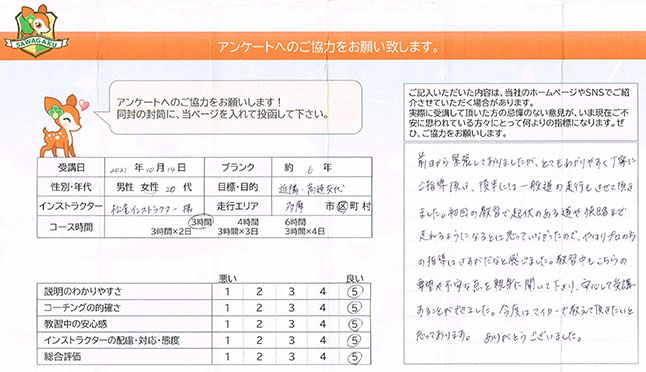 SAWAGAKU
アンケートへのご協力をお願い致します。
アンケートへのご協力をお願いします！
同封の封筒に、当ページを入れて投函して下さい。
受講日 2021年10月14日 ブランク 約6年
性別・年代 男性 女性 20代 目標・目的 近隣・高速
インストラクター インストラクター 様 走行エリア 多摩 市区町村
コース時間 3時間 4時間 6時間
3時間×2日 3時間×3日 3時間×4日
悪い 良い
説明のわかりやすさ 1 2 3 4 5
コーチングの的確さ 1 2 3 4 5
教習中の安心感 1 2 3 4 5
インストラクターの配慮・対応・態度 1 2 3 4 5
総合評価 1 2 3 4 5
ご記入いただいた内容は、当社のホームページやSNSでご紹
介させていただく場合があります。
実際に受講して頂いた方の忌憚のない意見が、いま現在ご不
安に思われている方々にとって何よりの指標になります。ぜ
ひ、ご協力をお願いします。
前日から緊張しておりましたが、とてもわかりやすく丁寧に
ご指導頂き、後半には一般道の走行もさせて頂き
ました。初回の教習で起伏のある道や狭路まで
走れるようになるとは思っていなかったので、やはりプロの方
の指導はさすがだなと感じました。教習中もこちらの
希望や不安な点を親身に聞いて下さり、安心して受講
することができました。今度はマイカーで教えて頂きたいと
思っております。 ありがとうございました。